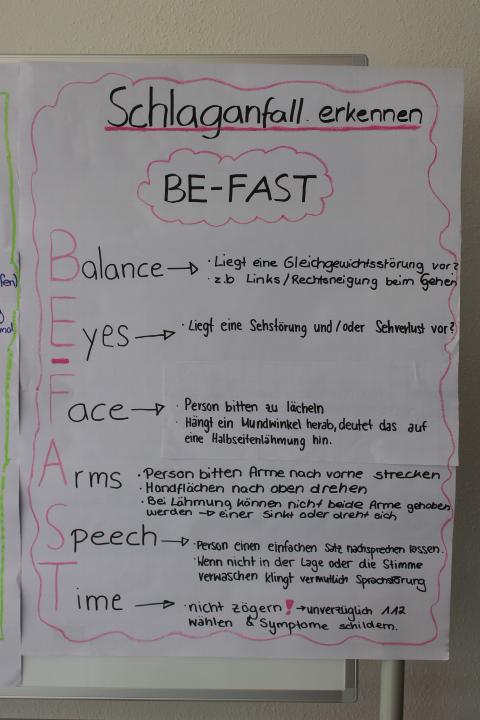 Schlaganfall erkennen
BE-FAST
Balance → · Liegt eine Gleichgewichtsstörung vor?
· z.b Links/Rechtsneigung beim Gehen
Eyes → · Liegt eine Sehstörung und/oder Sehverlust vor?
Face → · Person bitten zu lächeln
· Hängt ein Mundwinkel herab, deutet das auf
eine Halbseitenlähmung hin.
Arms · Person bitten Arme nach vorne strecken
· Handflächen nach oben drehen
· Bei Lähmung können nicht beide Arme gehoben
werden → einer sinkt oder dreht sich
Speech → · Person einen einfachen Satz nachsprechen lassen.
· Wenn nicht in der Lage oder die Stimme
verwaschen klingt vermutlich Sprachstörung
Time → · nicht zögern! → unverzüglich 112
wählen & Symptome schildern.
fen)